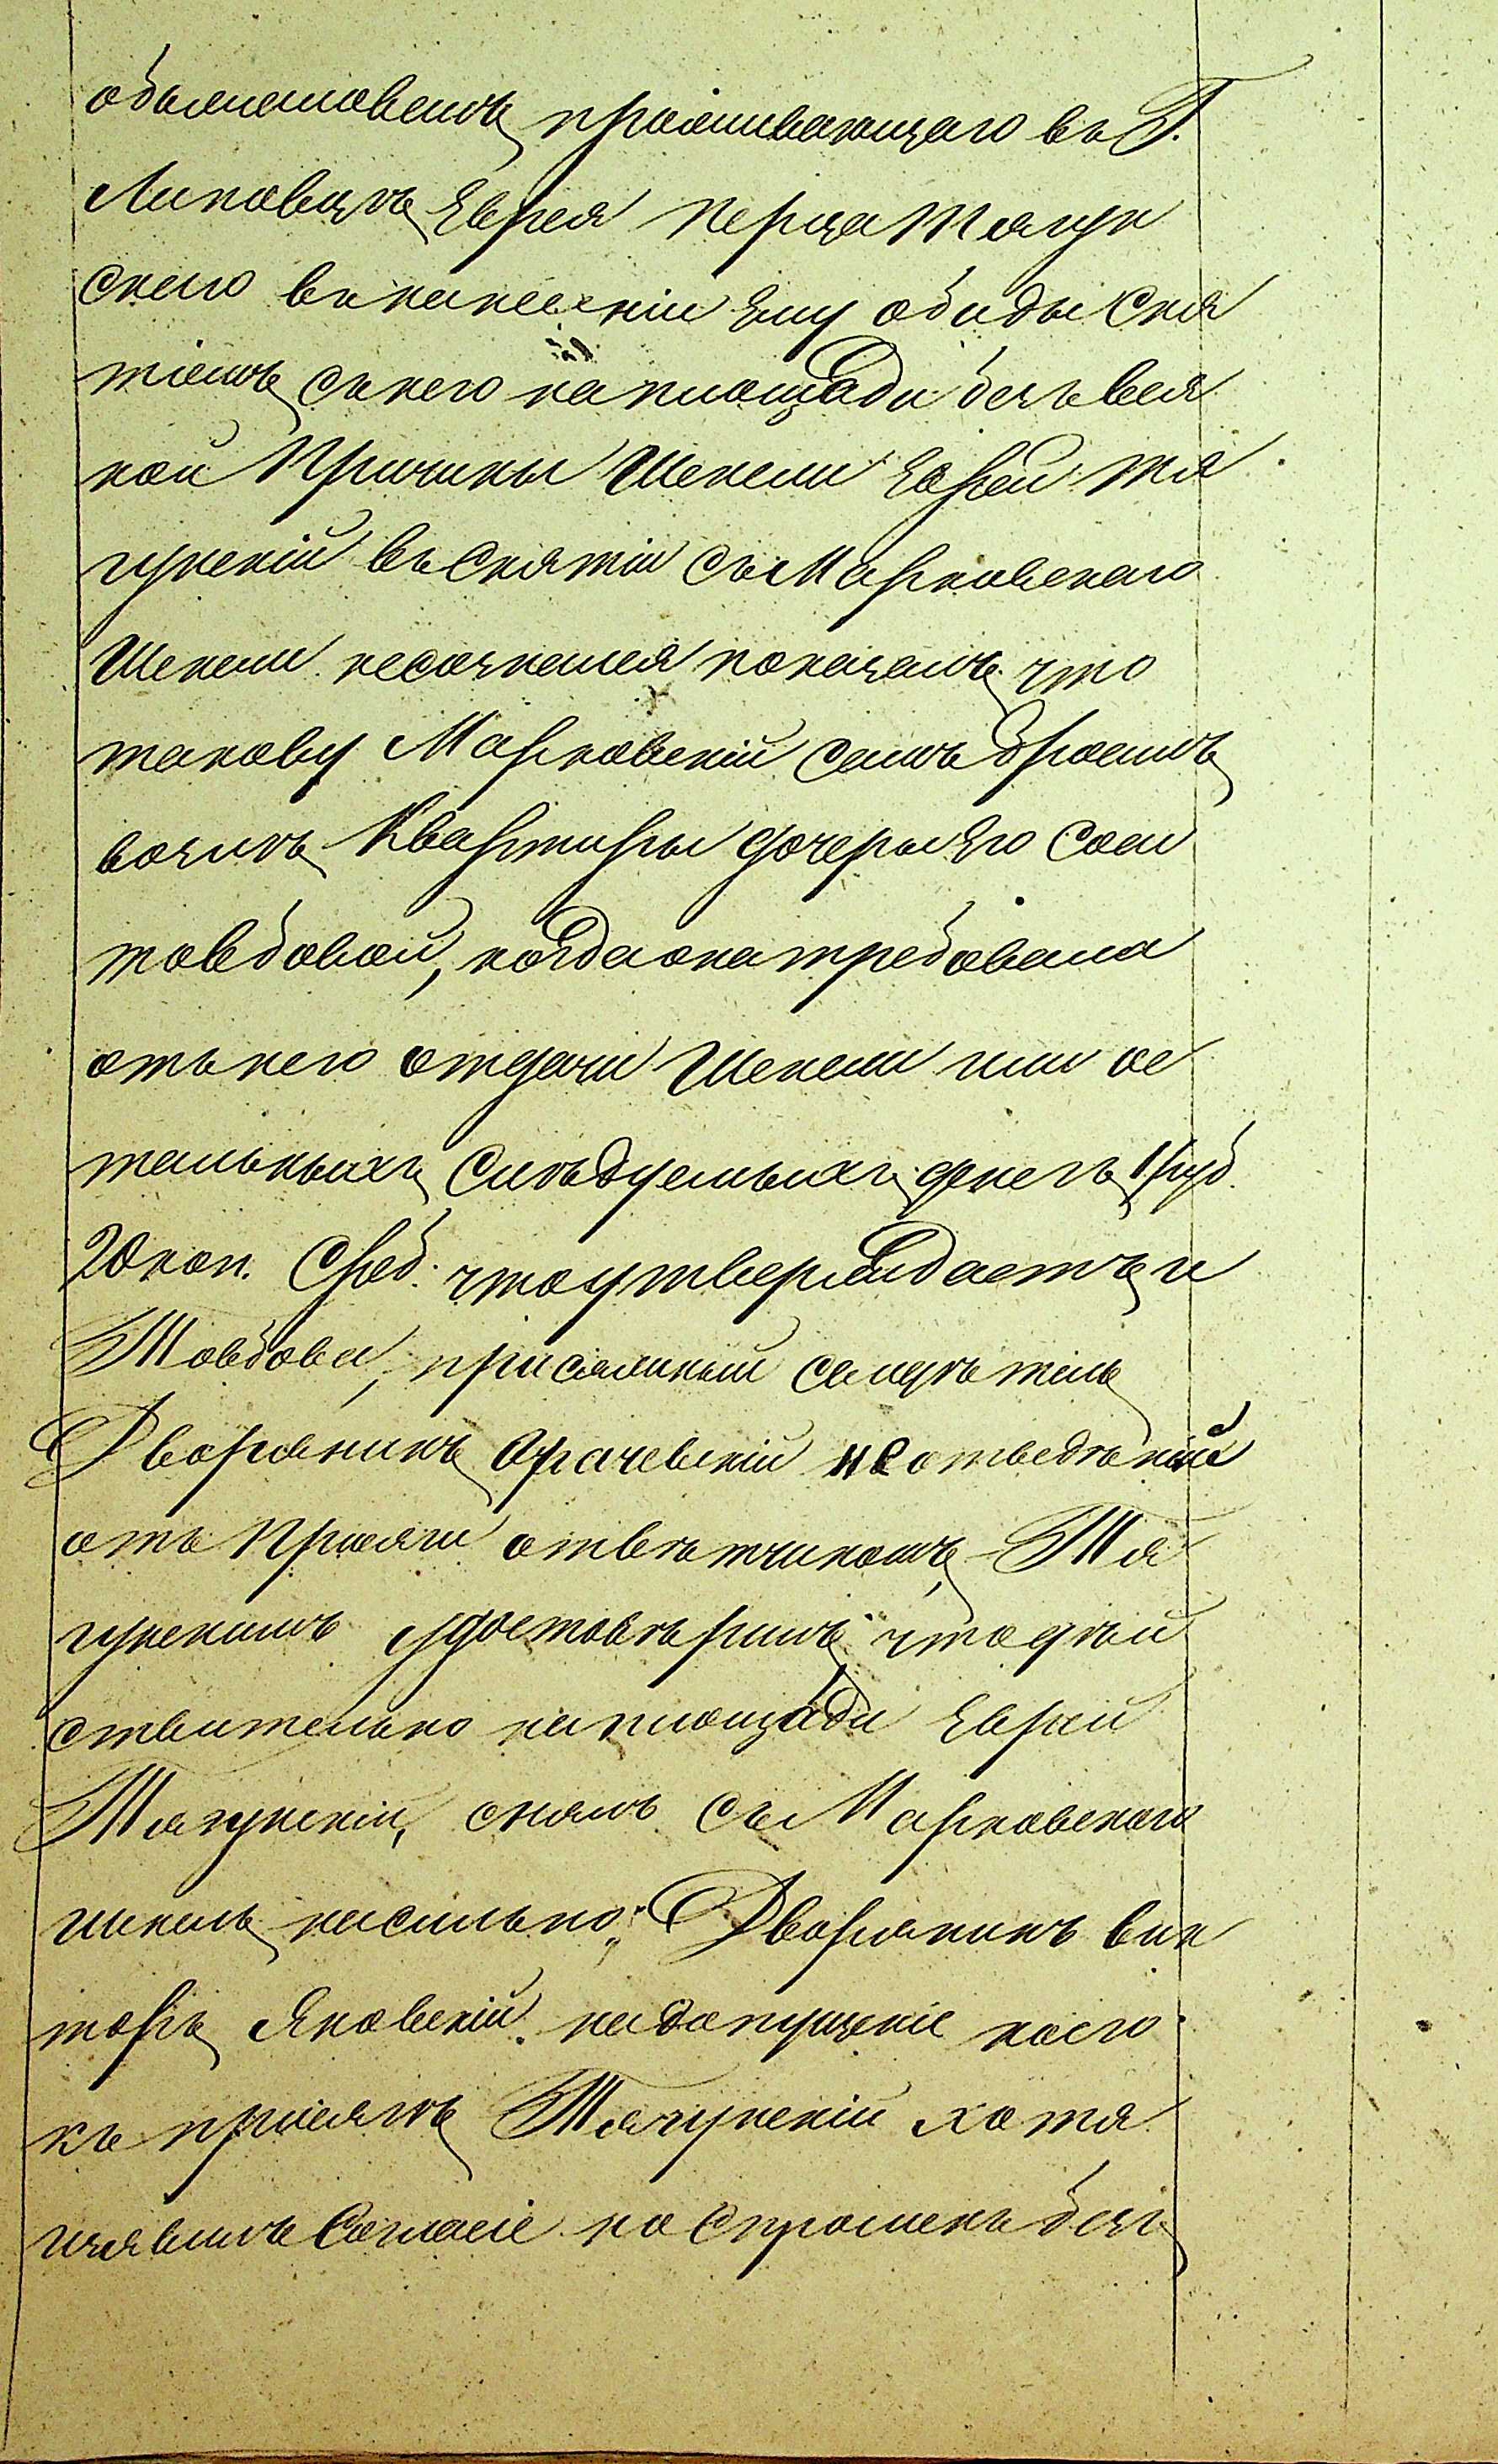 обжаловалъ проживающаго въ Г.
Липовцѣ Еврея Перца Тягун
скаго въ нанесеніи Ему обиды сня
тіемъ съ него на площади безъ вся
кой Причины Шенели Еврей Тя
гунскій въ снятіи съ Марковскаго
Шенели несознался показалъ что
такову Марковскій самъ бросилъ
возлѣ Квартиры дочеры Его Сои
Товбовой, когда она требовала
отъ него отдачи Шенели или ос
тальныхъ слѣдуемыхъ денегъ 1 руб.
20 коп. Среб. что утверждаетъ и
Товбова, присяжный свидѣтель
Дворянинъ Грачевскій не отведѣнній
отъ Присяги отвѣтчикомъ Тя
гунскимъ удостовѣрилъ что дѣй
ствительно на площади Еврей
Тягунскій, снялъ съ Марковскаго
шинель насильно, Дворянинъ Вик
торъ Яновскій на допущеніе коего
къ присягѣ Тягунскій хотя
изъявилъ Согласіе но спрошенъ безъ